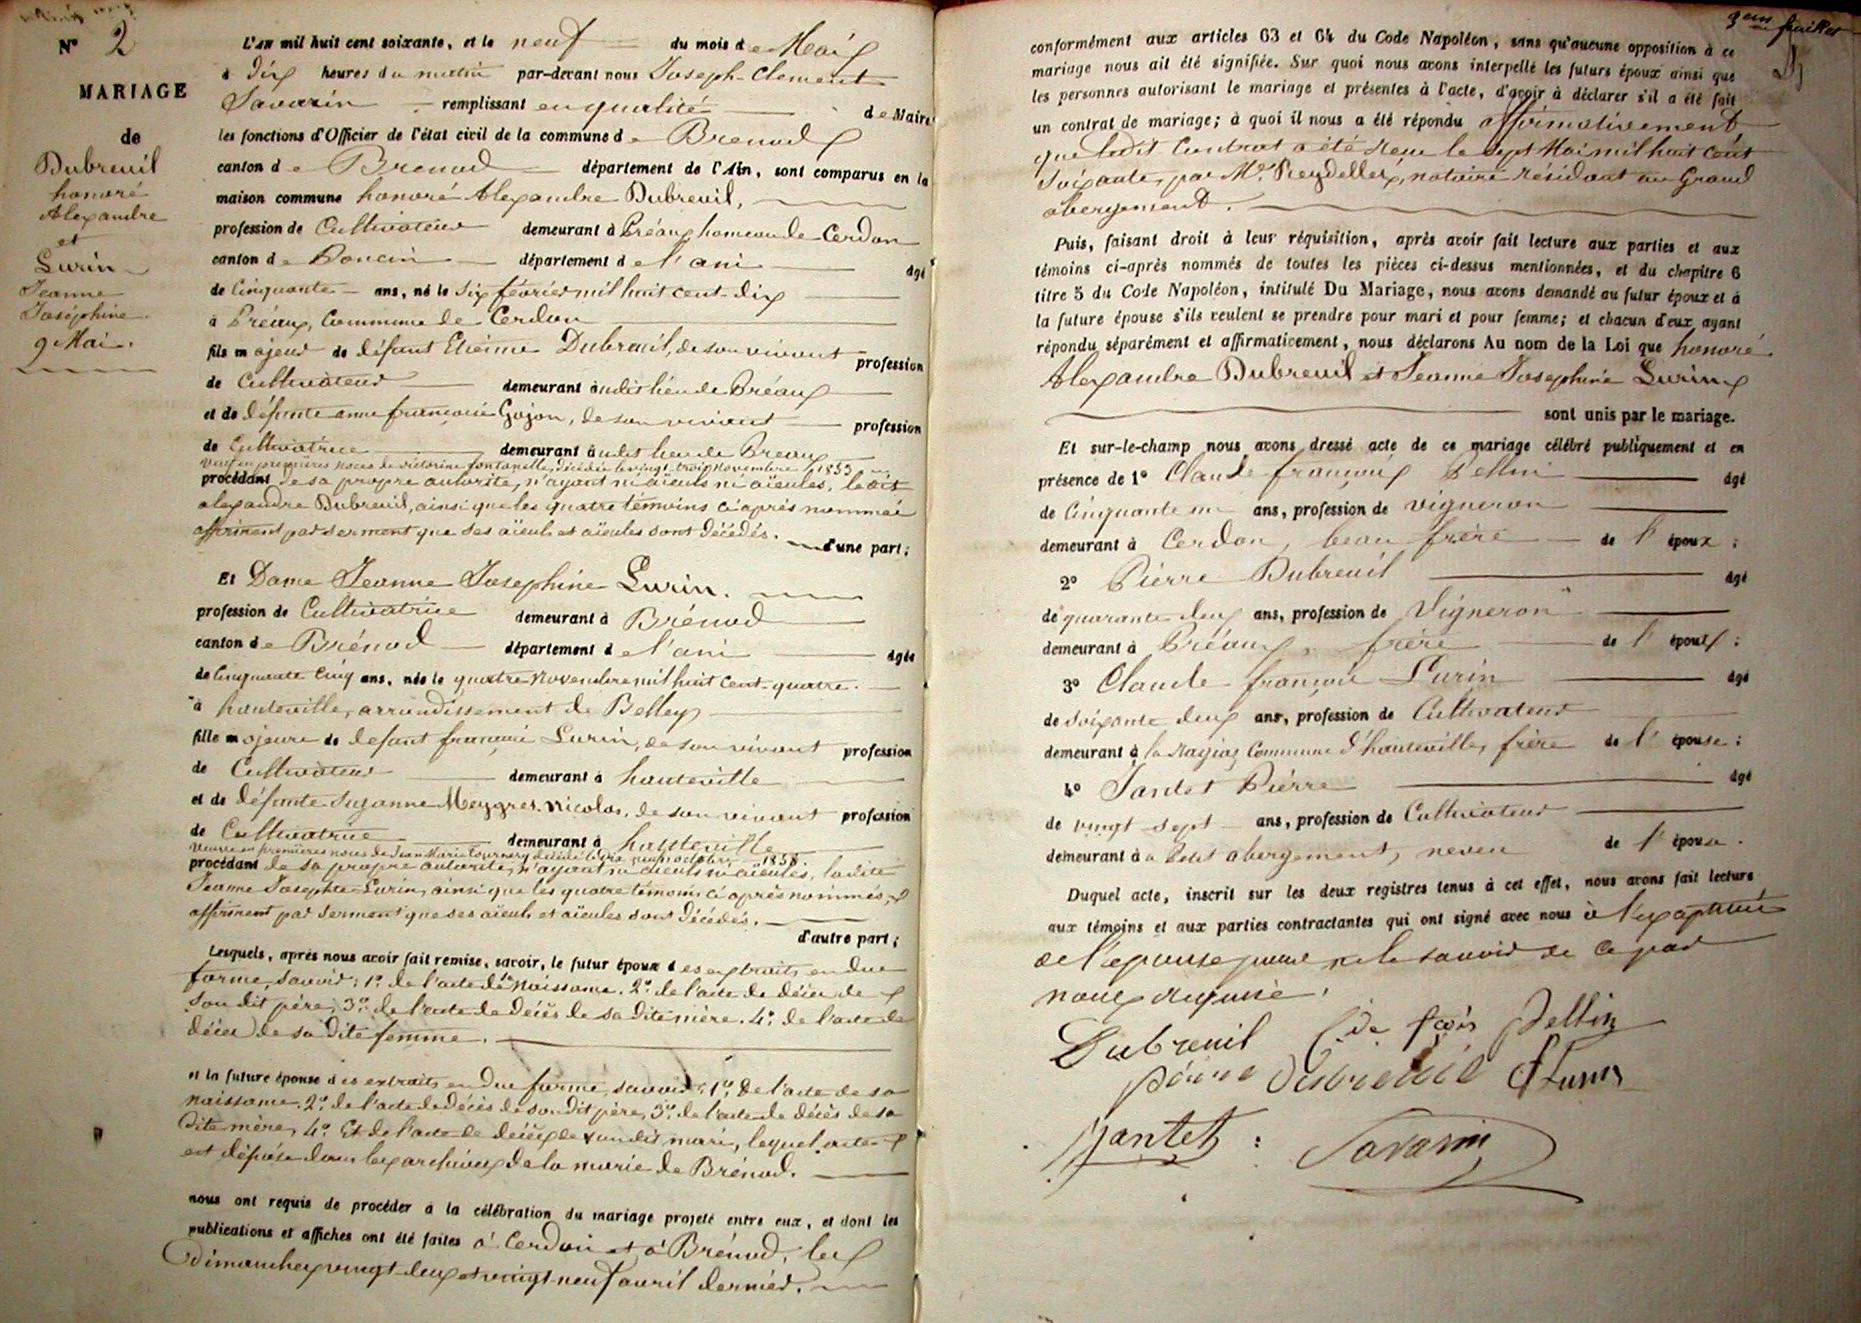 Nº 2
MARIAGE
de
Dubreuil
honoré
Alexandre
et
Lurin
Jeanne
Josephine.
9 Mai.
L'AN mil huit cent soixante, et le neuf du mois de Mai
à dix heures du matin par-devant nous Joseph-Clement
Savarin remplissant en qualité de Maire
les fonctions d'Officier de l'état civil de la commune de Brenod
canton de Brenod département de l'Ain, sont comparus en la
maison commune honoré Alexandre Dubreuil,
profession de Cultivateur demeurant à Préaux, hameau de Cerdon
canton de Poncin département de l'ain âgé
de Cinquante ans, né le Six février mil huit cent dix
à Préaux, Commune de Cerdon
fils majeur de défunt Etienne Dubreuil, de son vivant profession
de Cultivateur demeurant audit lieu de Préaux
et de défunte anne françoise Gojon, de son vivant profession
de Cultivatrice demeurant audit lieu de Preaux
veuf en premières noces de victorine fontanelle, décédée le vingt-trois Novembre 1853
procédant de sa propre autorité, n'ayant ni aïeuls ni aïeules, ledit
alexandre Dubreuil, ainsi que les quatre témoins ci après nommés
affirment par serment que ses aïeuls et aïeules sont décédés. d'une part;
Et Dame Jeanne Josephine Lurin.
profession de Cultivatrice demeurant à Brénod
canton de Brénod département de l'ain âgée
de Cinquante Cinq ans, née le quatre Novembre mil huit cent quatre.
à hauteville, arrondissement de Belley
fille majeure de defunt françois Lurin, de son vivant profession
de Cultivateur demeurant à hauteville
et de défunte Suzanne Meygret-Nicolas, de son vivant profession
de Cultivatrice demeurant à hauteville
veuve en premières noces de Jean Marie décédé le octobre 1858.
procédant de sa propre autorité, n'ayant ni aïeuls ni aïeules, ladite
Jeanne Josephte Lurin, ainsi que les quatre témoins ci après nommés,
affirment par serment que ses aïeuls et aïeules sont décédés.
d'autre part;
Lesquels, après nous avoir fait remise, savoir, le futur époux des extraits en due
forme, savoir: 1º de l'acte de sa Naissance. 2º de l'acte de décès de
son dit père, 3º de l'acte de décès de sa dite mère. 4º de l'acte de
décès de sa dite femme.
et la future épouse des extraits en due forme, savoir: 1º De l'acte de sa
naissance. 2º de l'acte de décès de son dit père, 3º de l'acte de décès de sa
dite mère, 4º Et de l'acte de décès de son dit mari, lequel acte
est déposé dans les archives de la mairie de Brénod.
nous ont requis de procéder à la célébration du mariage projeté entre eux, et dont les
publications et affiches ont été faites à Cerdon et à Brénod, les
dimanches vingt-deux et vingt-neuf avril dernier.
3eme feuillet
conformément aux articles 63 et 64 du Code Napoléon, sans qu'aucune opposition à ce
mariage nous ait été signifiée. Sur quoi nous avons interpellé les futurs époux ainsi que
les personnes autorisant le mariage et présentes à l'acte, d'avoir à déclarer s'il a été fait
un contrat de mariage; à quoi il nous a été répondu affirmativement
que ledit Contrat a été reçu le sept Mai mil huit cent
Soixante, par Me. Reydellet, notaire résidant au Grand
abergement.
Puis, faisant droit à leur réquisition, après avoir fait lecture aux parties et aux
témoins ci-après nommés de toutes les pièces ci-dessus mentionnées, et du chapitre 6
titre 5 du Code Napoléon, intitulé Du Mariage, nous avons demandé au futur époux et à
la future épouse s'ils veulent se prendre pour mari et pour femme; et chacun d'eux ayant
répondu séparément et affirmativement, nous déclarons Au nom de la Loi que honoré
Alexandre Dubreuil et Jeanne Josephine Lurin
sont unis par le mariage.
Et sur-le-champ nous avons dressé acte de ce mariage célébré publiquement et en
présence de 1º Claude françois Pellin âgé
de Cinquante un ans, profession de vigneron
demeurant à Cerdon, beau frère de l'époux;
2º Pierre Dubreuil âgé
de quarante deux ans, profession de Vigneron
demeurant à Préaux, frère de l'époux;
3º Claude françois Lurin âgé
de Soixante deux ans, profession de Cultivateur
demeurant à la Commune d'hauteville, frère de l'épouse;
4º Jantet Pierre âgé
de vingt sept ans, profession de Cultivateur
demeurant à Petit abergement, neveu de l'épouse.
Duquel acte, inscrit sur les deux registres tenus à cet effet, nous avons fait lecture
aux témoins et aux parties contractantes qui ont signé avec nous à l'exception
de l'épouse pour ne le savoir de ce par
nous requise.
Dubreuil Cde fçois Pellin
pierre Dubreuil Lurin
Jantet Savarin